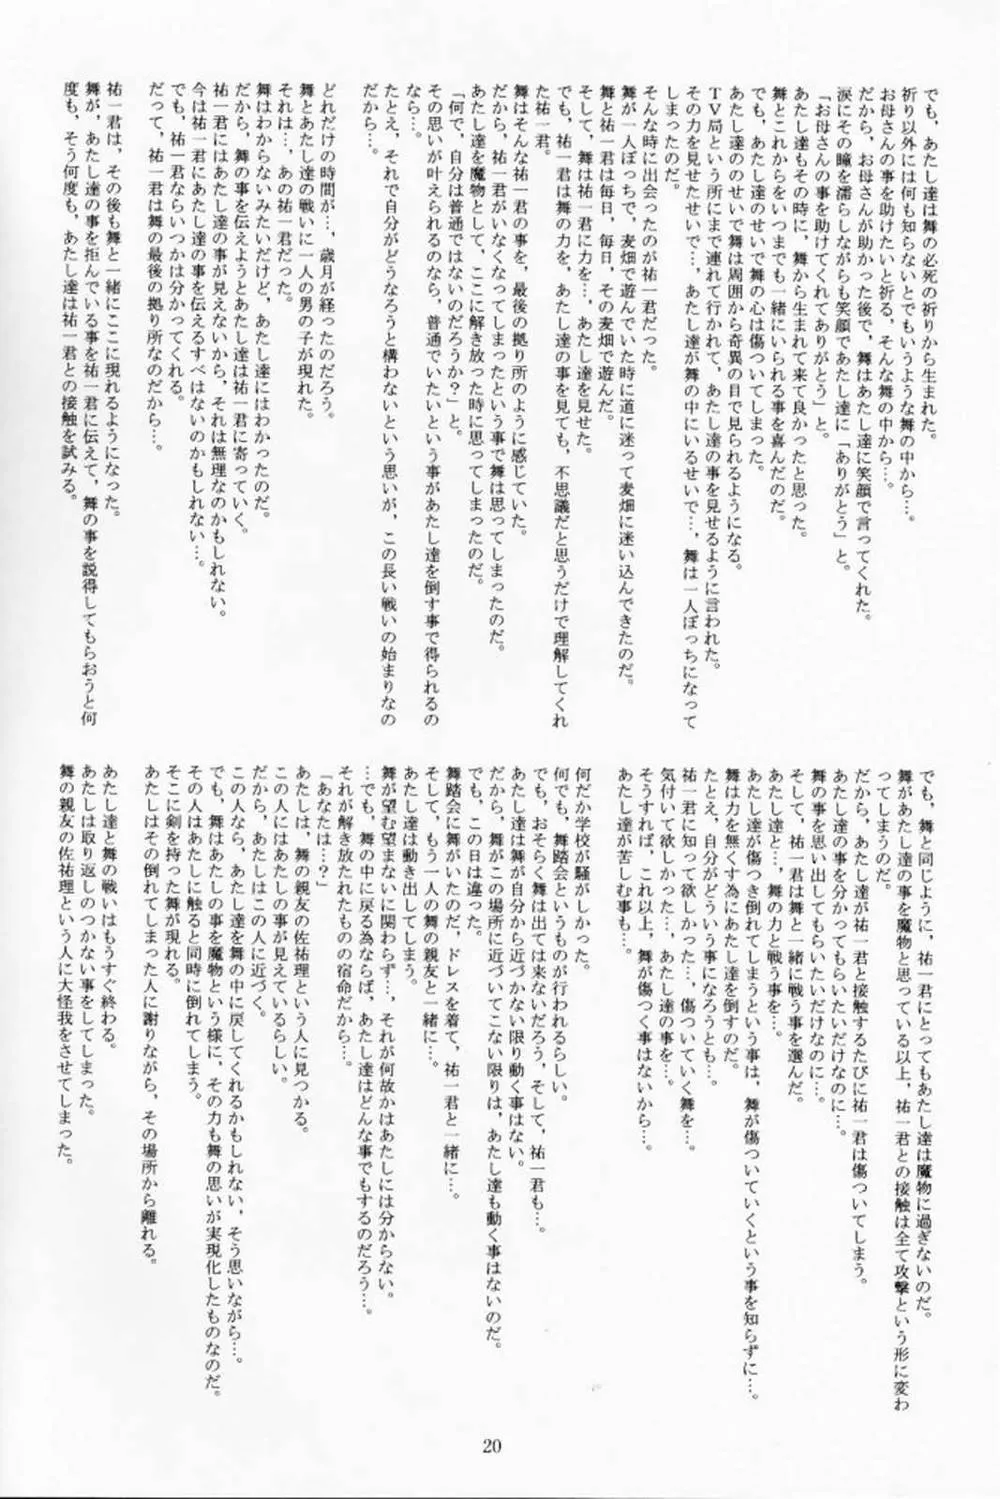 でも、あたし達は舞の必死の祈りから生まれた。
祈り以外には何も知らないとでもいうような舞の中から…。
お母さんの事を助けたいと祈る、そんな舞の中から…。
だから、お母さんが助かった後で、舞はあたし達に笑顔で言ってくれた。
涙にその瞳を濡らしながらも笑顔であたし達に「ありがとう」と。
「お母さんの事を助けてくれてありがとう」と。
あたし達もその時に、舞から生まれて来て良かったと思った。
舞とこれからをいつまでも一緒にいられる事を喜んだのだ。
でも、あたし達のせいで舞の心は傷ついてしまった。
あたし達ののせいで舞は周囲から奇異の目で見られるようになる。
TV局という所にまで連れて行かれて、あたし達の事を見せるように言われた。
その力を見せたせいで…、あたし達が舞の中にいるせいで…、舞は一人ぼっちになって
しまったのだ。
そんな時に出会ったのが祐一君だった。
舞が一人ぼっちで、麦畑で遊んでいた時に道に迷って麦畑に迷い込んできたのだ。
舞と祐一君は毎日、毎日、その麦畑で遊んだ。
そして、舞は祐一君に力を…、あたし達を見せた。
でも、祐一君は舞の力を、あたし達の事を見ても、不思議だと思うだけで理解してくれ
た祐一君。
舞はそんな祐一君の事を、最後の拠り所のように感じていた。
だから、祐一君がいなくなってしまったという事で舞は思ってしまったのだ。
あたし達を魔物として、ここに解き放った時に思ってしまったのだ。
「何で、自分は普通ではないのだろうか？」と。
その思いが叶えられるのなら、普通でいたいという事があたし達を倒す事で得られるの
なら…。
たとえ、それで自分がどうなろうと構わないという思いが、この長い戦いの始まりなの
だから…。
どれだけの時間が…、歳月が経ったのだろう。
舞とあたし達の戦いに一人の男の子が現れた。
それは…、あの祐一君だった。
舞はわからないみたいだけど、あたし達にはわかったのだ。
だから、舞の事を伝えようとあたし達は祐一君に寄っていく。
祐一君にはあたし達の事が見えないから、それは無理なのかもしれない。
今は祐一君にあたし達の事を伝えるすべはないのかもしれない…。
でも、祐一君ならいつかは分かってくれる。
だって、祐一君は舞の最後の拠り所なのだから…。
祐一君は、その後も舞と一緒にここに現れるようになった。
舞が、あたし達の事を拒んでいる事を祐一君に伝えて、舞の事を説得してもらおうと何
度も、そう何度も、あたし達は祐一君との接触を試みる。
でも、舞と同じように、祐一君にとってもあたし達は魔物に過ぎないのだ。
舞があたし達の事を魔物と思っている以上、祐一君との接触は全て攻撃という形に変わ
ってしまうのだ。
だから、あたし達が祐一君と接触するたびに祐一君は傷ついてしまう。
あたし達の事を分かってもらいたいだけなのに…。
舞の事を思い出してもらいたいだけなのに…。
そして、祐一君は舞と一緒に戦う事を選んだ。
あたし達と…、舞の力と戦う事を…。
あたし達が傷つき倒れてしまうという事は、舞が傷ついていくという事を知らずに…。
舞は力を無くす為にあたし達を倒すのだ。
たとえ、自分がどういう事になろうとも…。
祐一君に知って欲しかった…、傷ついていく舞を…。
気付いて欲しかった…、あたし達の事を…。
そうすれば、これ以上、舞が傷つく事はないから…。
あたし達が苦しむ事も…。
何だか学校が騒がしかった。
何でも、舞踏会というものが行われるらしい。
でも、おそらく舞は出ては来ないだろう、そして、祐一君も…。
あたし達は舞が自分から近づかない限り動く事はない。
だから、舞がこの場所に近づいてこない限りは、あたし達も動く事はないのだ。
でも、この日は違った。
舞踏会に舞がいたのだ、ドレスを着て、祐一君と一緒に…。
そして、もう一人の舞の親友と一緒に…。
あたし達は動き出してしまう。
舞が望む望まないに関わらず…、それが何故かはあたしには分からない。
…でも、舞の中に戻る為ならば、あたし達はどんな事でもするのだろう…。
それが解き放たれたものの宿命だから…。
「あなたは…？」
あたしは、舞の親友の佐祐理という人に見つかる。
この人にはあたしの事が見えているらしい。
だから、あたしはこの人に近づく。
この人なら、あたし達を舞の中に戻してくれるかもしれない、そう思いながら…。
でも、舞はあたしの事を魔物という様に、その力も舞の思いが実現化したものなのだ。
その人はあたしに触ると同時に倒れてしまう。
そこに剣を持った舞が現れる。
あたしはその倒れてしまった人に謝りながら、その場所から離れる。
あたし達と舞の戦いはもうすぐ終わる。
あたしは取り返しのつかない事をしてしまった。
舞の親友の佐祐理という人に大怪我をさせてしまった。
20